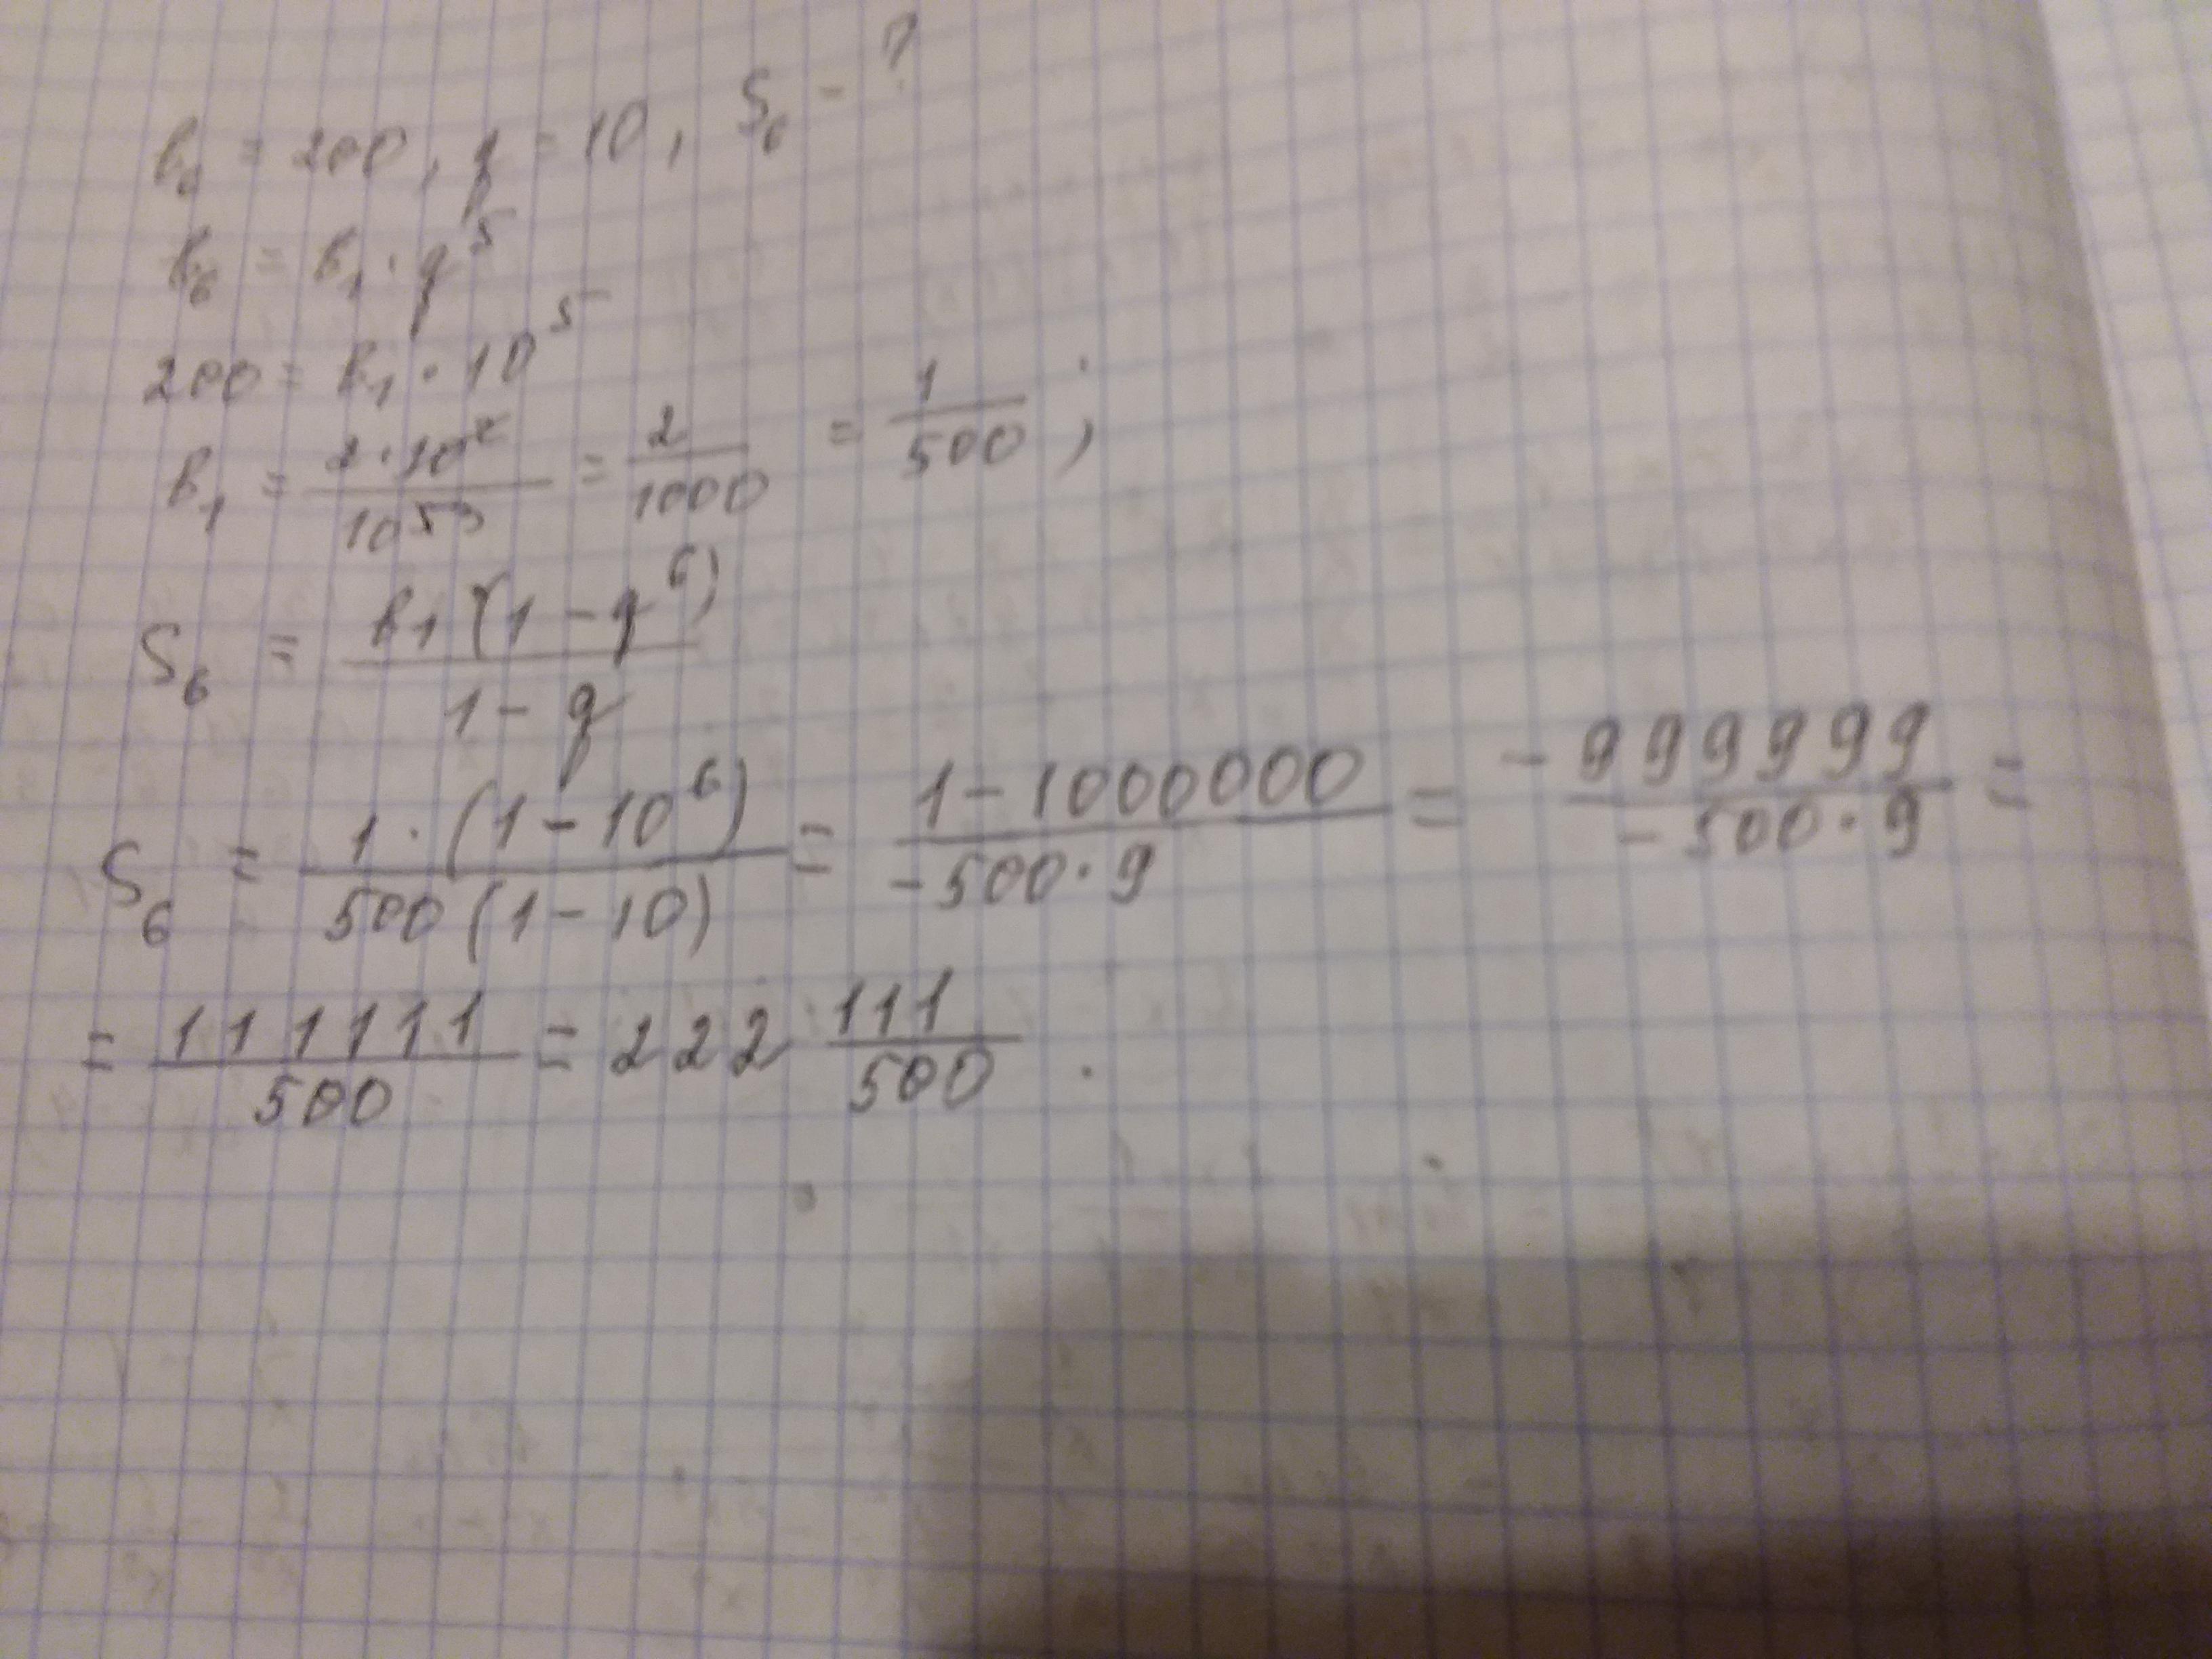 b₆ = 200, q = 10, S₆ - ?
b₆ = b₁ · q⁵
200 = b₁ · 10⁵
b₁ = 2·10²/10⁵³ = 2/1000 = 1/500 ;
S₆ = b₁(1 - q⁶)/1 - q
S₆ = 1·(1 - 10⁶)/500(1 - 10) = 1 - 1000000/-500·9 = -999999/-500·9 =
= 111111/500 = 222 111/500 .